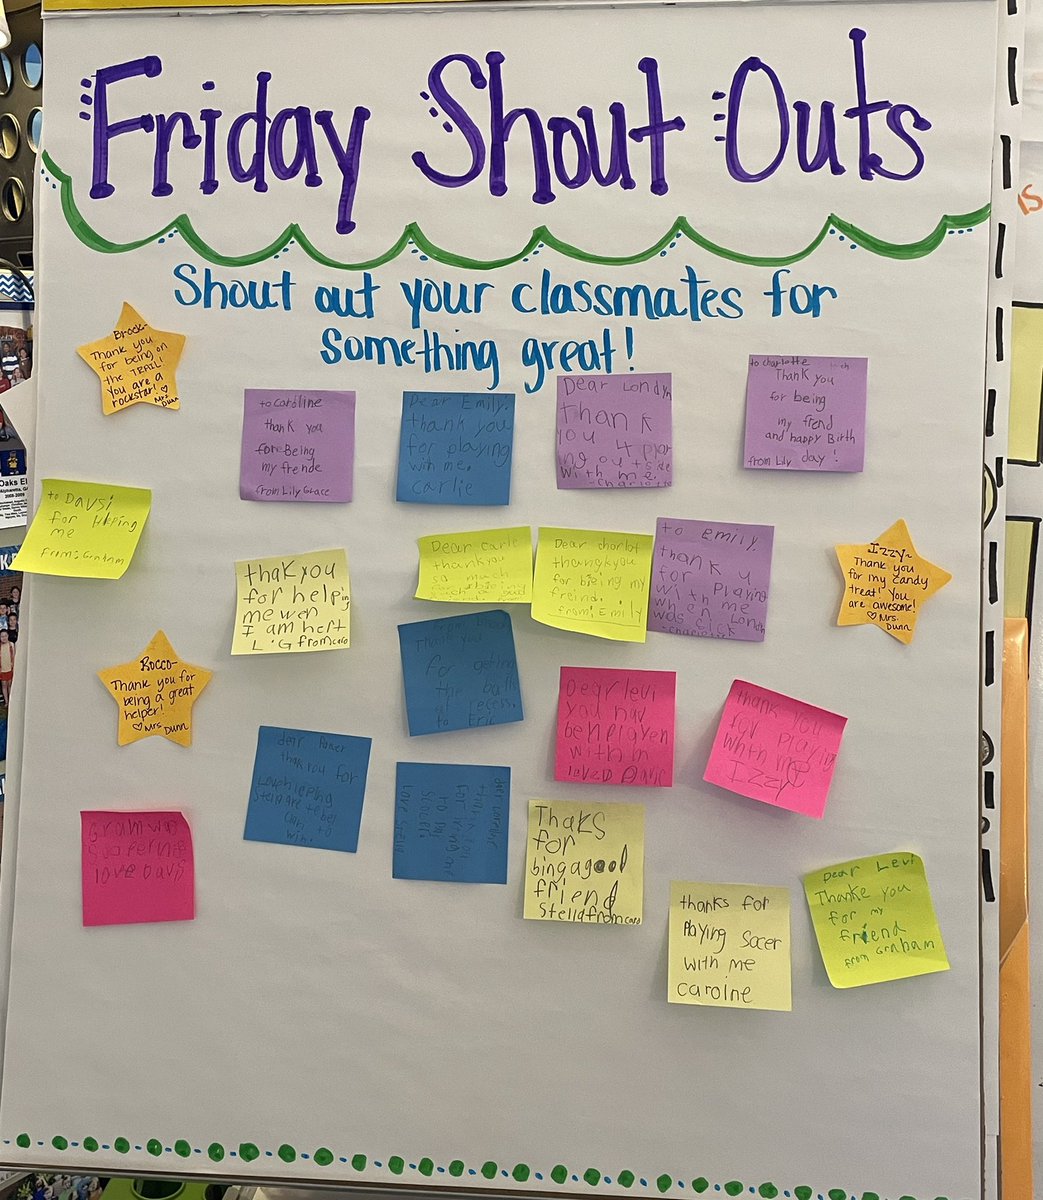 Friday Shout Outs
Shout out your classmates for
something great!
Brock-
Thank you
for being on
the TRAIL!
You are a
rockstar! ♡
Mrs.
Dunn
to caroline
thank you
for Being
my frende
from Lily Grace
Dear Emily.
thank you
for playing
with me.
carlie
Dear Londyn
thank
you 4 play
ing out + side
with me.
- charlotte
to charlotte
Thank you
for being
my frend
and happy Birth
from Lily day!
to Davsi
for Helping
me
From: Graham
thak you
for helping
me wen
I am hert
L.G from caro
Dear carle
thank you
so much
Dear charlot
thangkyou
for bieing my
freind.
from: Emily
to emily.
thank u
for Playing
with me
when Londn
was sick
- charlotte
Izzy~
Thank you
for my candy
treat! You
are awesome!
♡ Mrs.
Dunn
Rocco-
Thank you for
being a great
helper!
♡ Mrs.
Dunn
thank you
for getting
the ball
at recess.
to Eric
Dear levi
you hav
be helpven
with m
loved Davis
thank you
for playing
whth me
Izzy
dear
thak you for
win.
dear caroline
thank you
for
love
Gram was
love Davis
Thaks
for
bing a good
friend
Stella from caro
thanks for
Playing Socer
with me
caroine
Dear Levi
Thanke you
for my
friend
from Graham
Oaks El